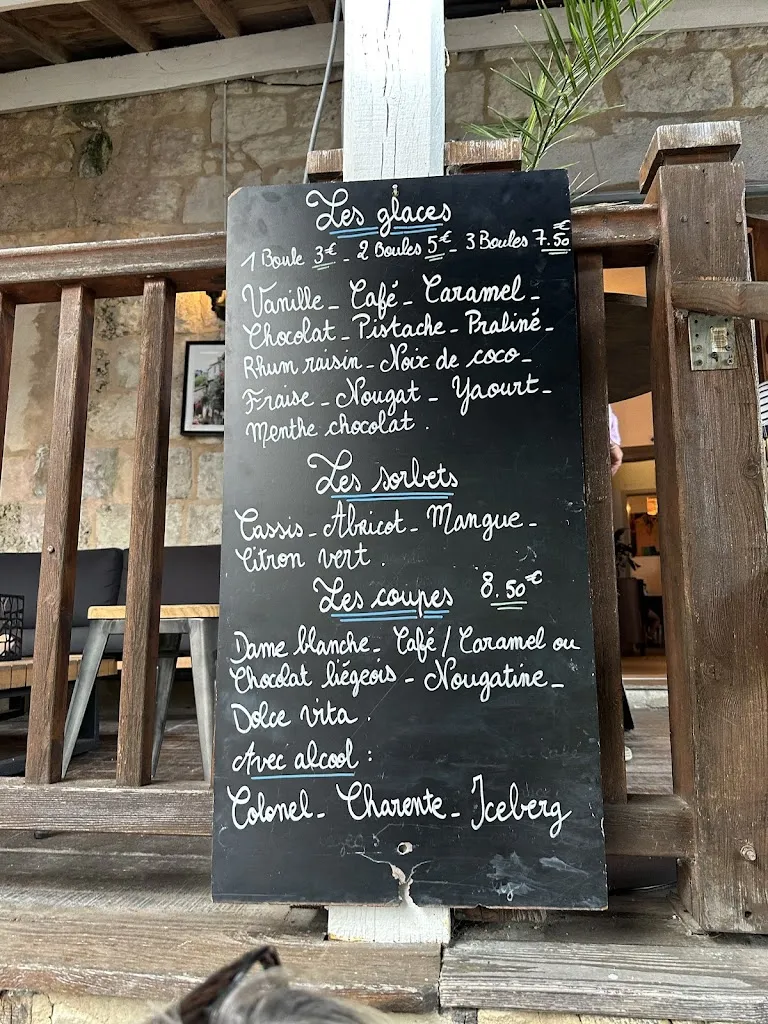 Les glaces
1 Boule 3€ - 2 Boules 5€ - 3 Boules 7.50€
Vanille - Café - Caramel -
Chocolat - Pistache - Praliné -
Rhum raisin - Noix de coco -
Fraise - Nougat - Yaourt -
Menthe chocolat .
Les sorbets
Cassis - Abricot - Mangue -
Citron vert .
Les coupes 8.50€
Dame blanche - Café / Caramel ou
Chocolat liégeois - Nougatine -
Dolce vita .
Avec alcool :
Colonel - Charente - Iceberg